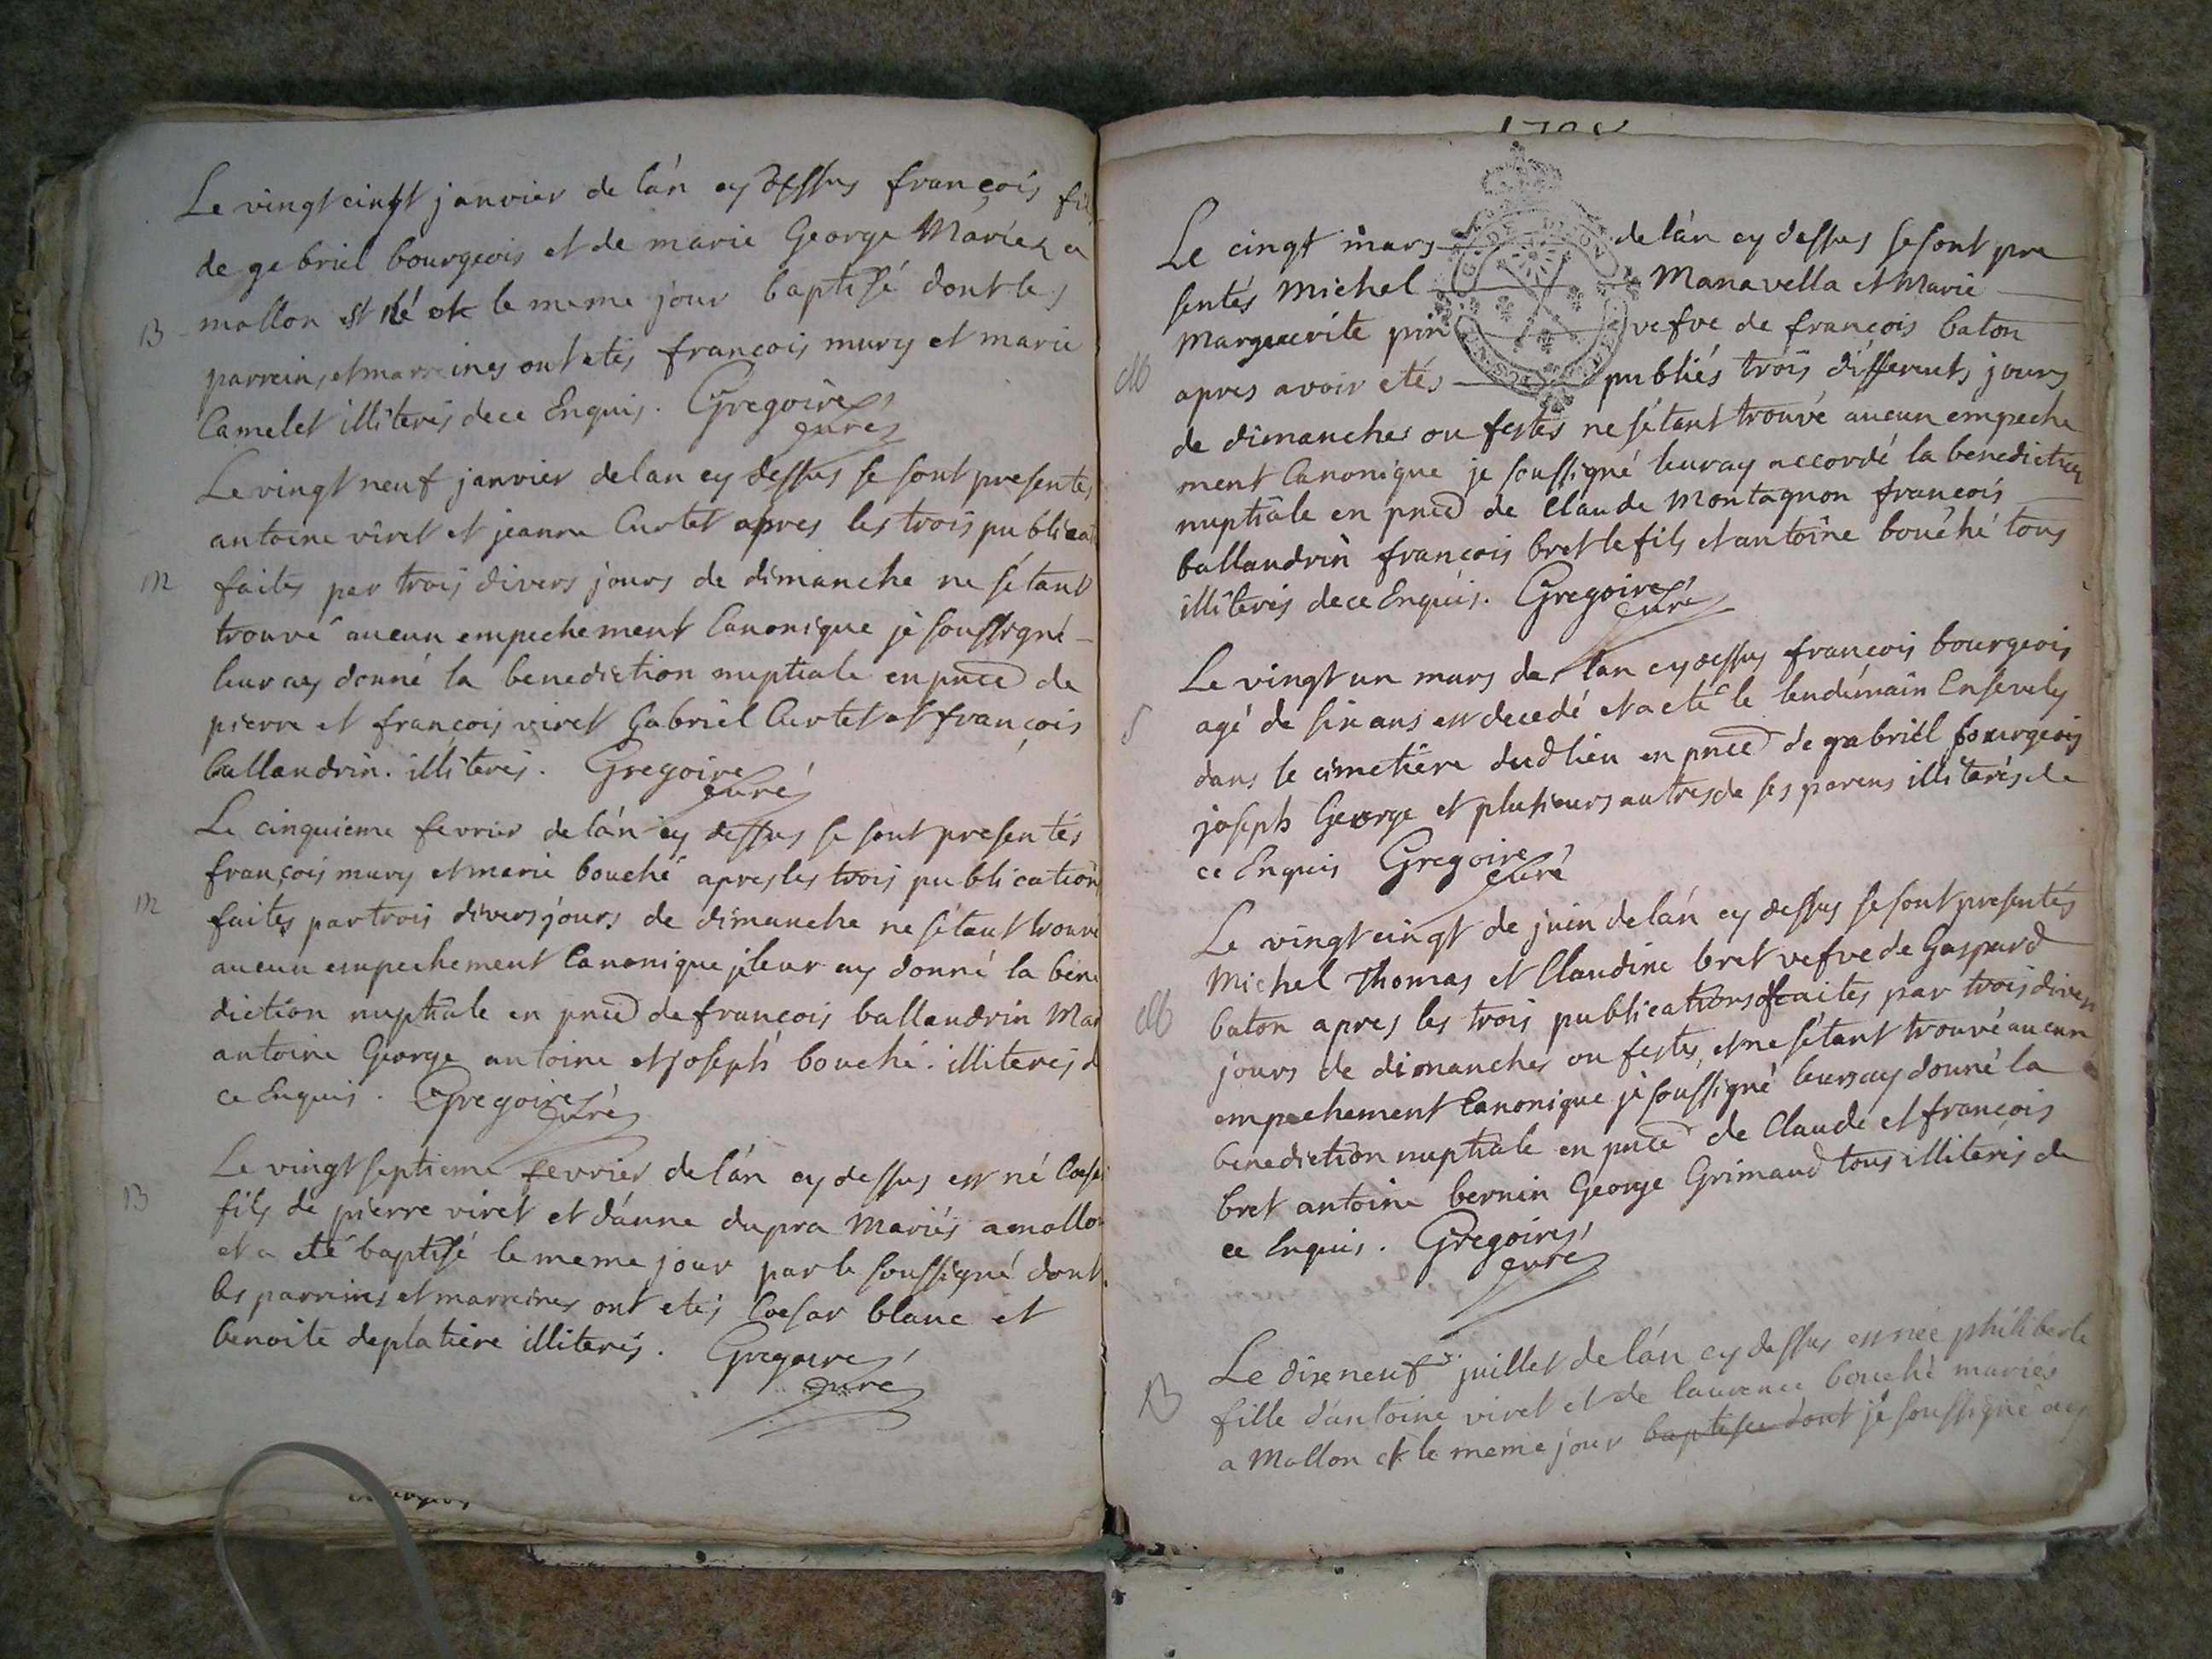 Le vingt cinqt janvier de lán cy dessus francois fil
de gabriel bourgeois et de marie George Mariez a
B mollon est né et le meme jour baptisé dont les
parreins et marreines ont etés francois mury et marie
Camelet illiterés de ce Enquis. Gregoire
curé
Le vingt neuf janvier de lan cy dessus se sont presentes
antoine viret et jeanne Curtet apres les trois publicat
M faites par trois divers jours de dimanche ne sétant
trouvé aucun empechement Canonique je soussigné
leur ay donné la benediction nuptiale en pnce de
pierre et françois viret Gabriel Curtet et françois
ballandrin. illiterés. Gregoire
curé
Le cinquieme fevrier de lán cy dessus se sont presentés
françois mury et marie bouché apres les trois publication
M faites par trois divers jours de dimanche ne sétant trouvé
aucun empechement Canonique je leur ay donné la béné
diction nuptiale en pnce de francois ballandrin Mar
antoine George antoine et joseph bouché. illiterés d
ce Enquis. Gregoire
curé
Le vingt septieme fevrier de lán cy dessus est né Coesar
B fils de pierre viret et dánne dupra Mariés a mollon
et a eté baptisé le meme jour par le soussigné dont
les parreins et marreines ont etés Coesar blanc et
benoite deplatière illiterés. Gregoire
curé
Le cinqt mars de lán cy dessus se sont pre
sentés Michel Manavella et Marie
Marguerite pin vefve de françois baton
M apres avoir etés publiés trois différents jours
de dimanches ou festes ne sétant trouvé aucun empeche
ment Canonique je soussigné leur ay accordé la benediction
nuptiale en pnce de Claude Montagnon françois
ballandrin françois bret le fils et antoine bouché tous
illiterés de ce Enquis. Gregoire
curé
Le vingt un mars de lan cy dessus françois bourgeois
S agé de six ans est decedé et a eté le lendemain Ensevely
dans le cimetière dud lieu en pnce de gabriel bourgeois
joseph George et plusieurs autres de ses parens illiterés de
ce Enquis Gregoire
Curé
Le vingt cinqt de juin de lán cy dessus se sont presentés
Michel Thomas et Claudine bret vefve de Gaspard
M baton apres les trois publications faites par trois divers
jours de dimanches ou festes, et ne sétant trouvé aucun
empechement Canonique je soussigné leurs ay donné la
benediction nuptiale en pnce de Claude et françois
bret antoine bernin George Grimaud tous illiterés de
ce Enquis. Gregoire
curé
Le dixneuf juillet de lán cy dessus est née philiberte
B fille dántoine viret et de laurence bouché mariés
a Mollon et le meme jour baptisee dont je soussigné ay